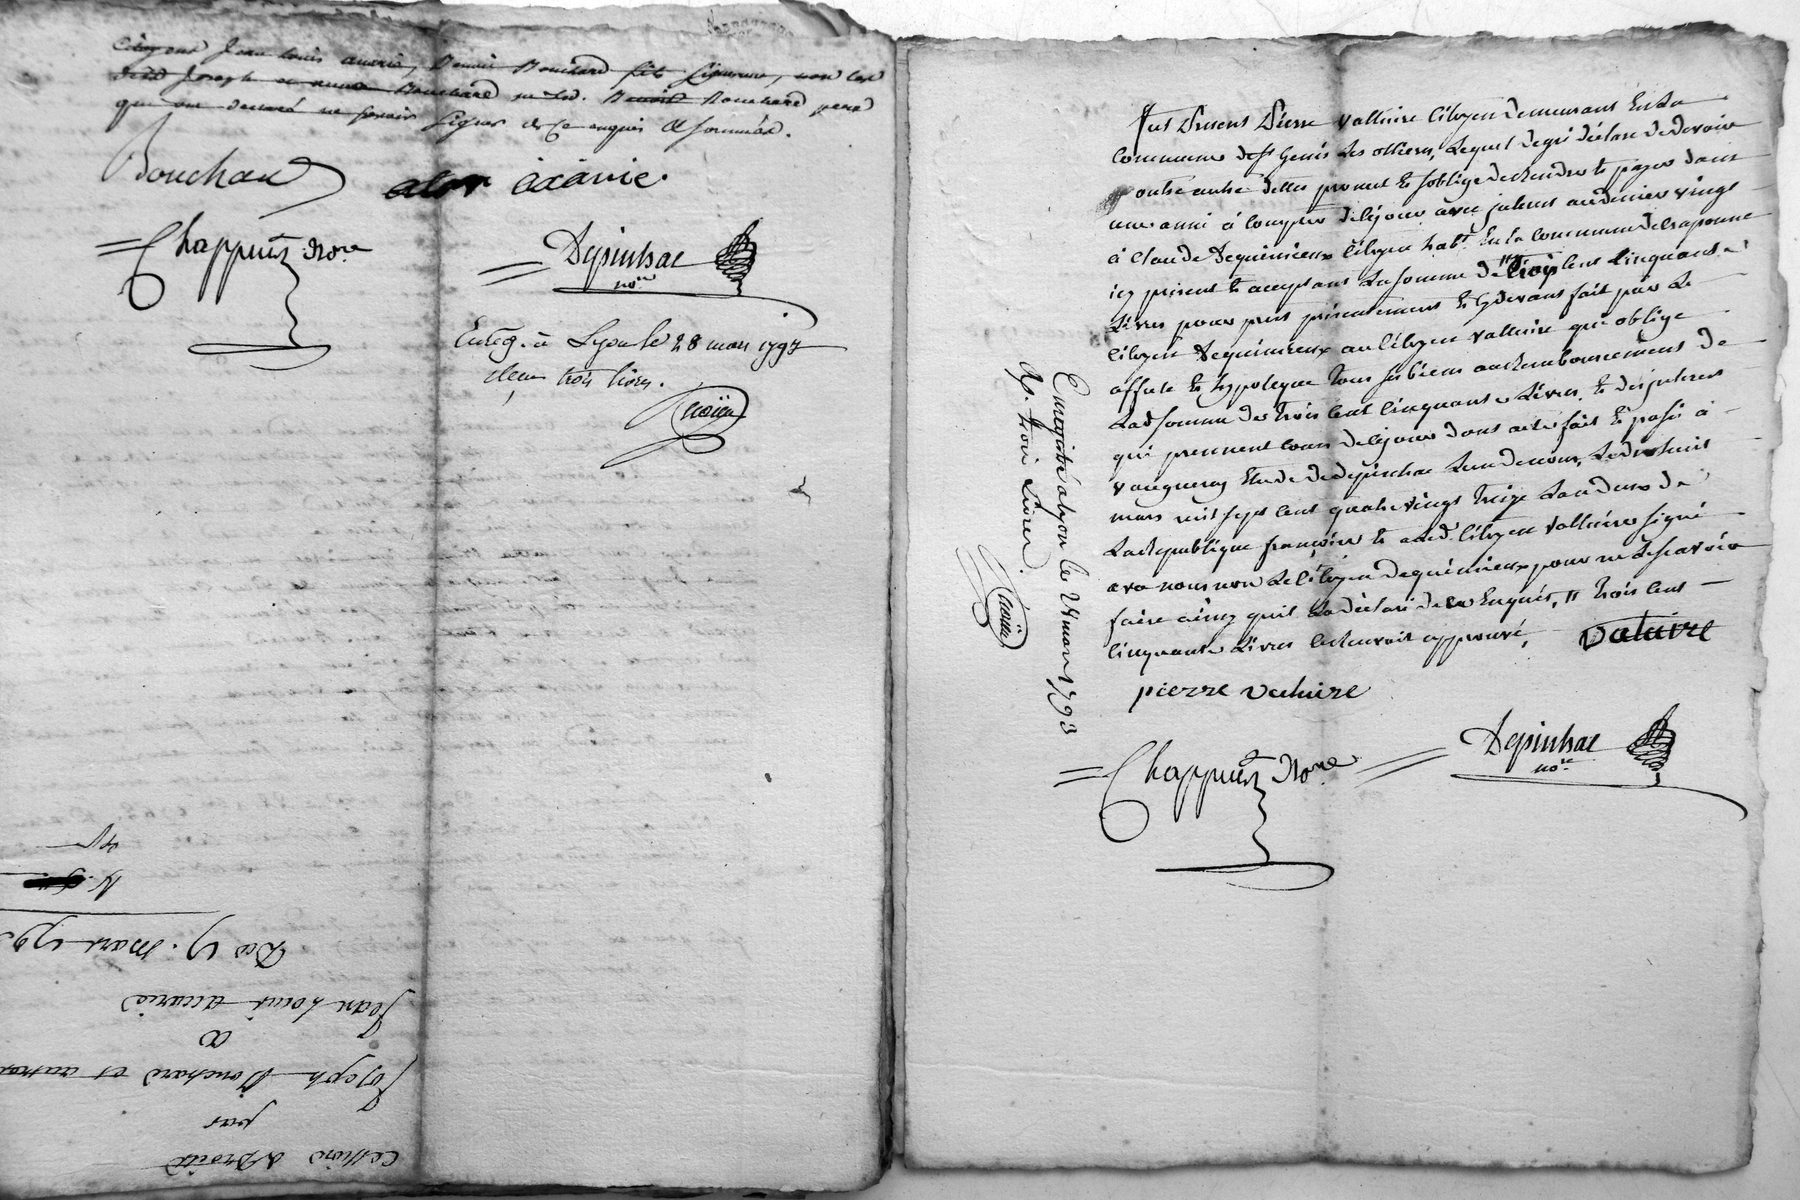 Citoyens Jean Louis accarie, Benoit Bouchard fils signeront, non les
dits Joseph et Bouchard ny led. Benoit Bouchard pere
qui ont declaré ne savoir signer de ce enquis & sommés.
Bouchard
accarie.
Chappuis nore
Depinhac
nore
Enreg. à Lyon le 28 mars 1793
reçu trois livres.
N.
Du 17. mars 1793
Jean Louis accarie
a
Joseph Bouchard et autres
par
Cession de droits
Fut Present Pierre Valluire Citoyen demeurant En la
Commune de St Genis les ollieres, Lequel de gré déclare de devoir
outre autre dettes promet et s'oblige de Rendre et payer dans
une anné à Compter de ce jour avec interet au denier vingt
à Claude Dequinieux Citoyen habt En la Commune de Craponne
icy present et acceptant La somme de trois Cent Cinquante
Livres pour pret presentement et cy devant fait par Le
Citoyen Dequinieux au Citoyen Valluire qui oblige
affecte et hypoteque tous ses biens au Remboursement de
Lad. somme de trois Cent Cinquante Livres, et des interets
qui prennent cours de ce jour dont acte fait et passé à
Vaugneray Etude de Depinhac L'un de nous, Le dix huit
mars mil sept Cent quatre vingt treize L'an deux de
La Republique françoise et a Led. Citoyen Valluire signé
avec nous non Le Citoyen Dequinieux pour ne Le sçavoir
faire ainsy quil La déclaré de ce Enquis, // trois Cent
Cinquante Livres approuvé,
Valuire
pierre valuire
Chappuis nore
Depinhac
nore
Enregistré a Lyon le 28 mars 1793
R. trois Livres.